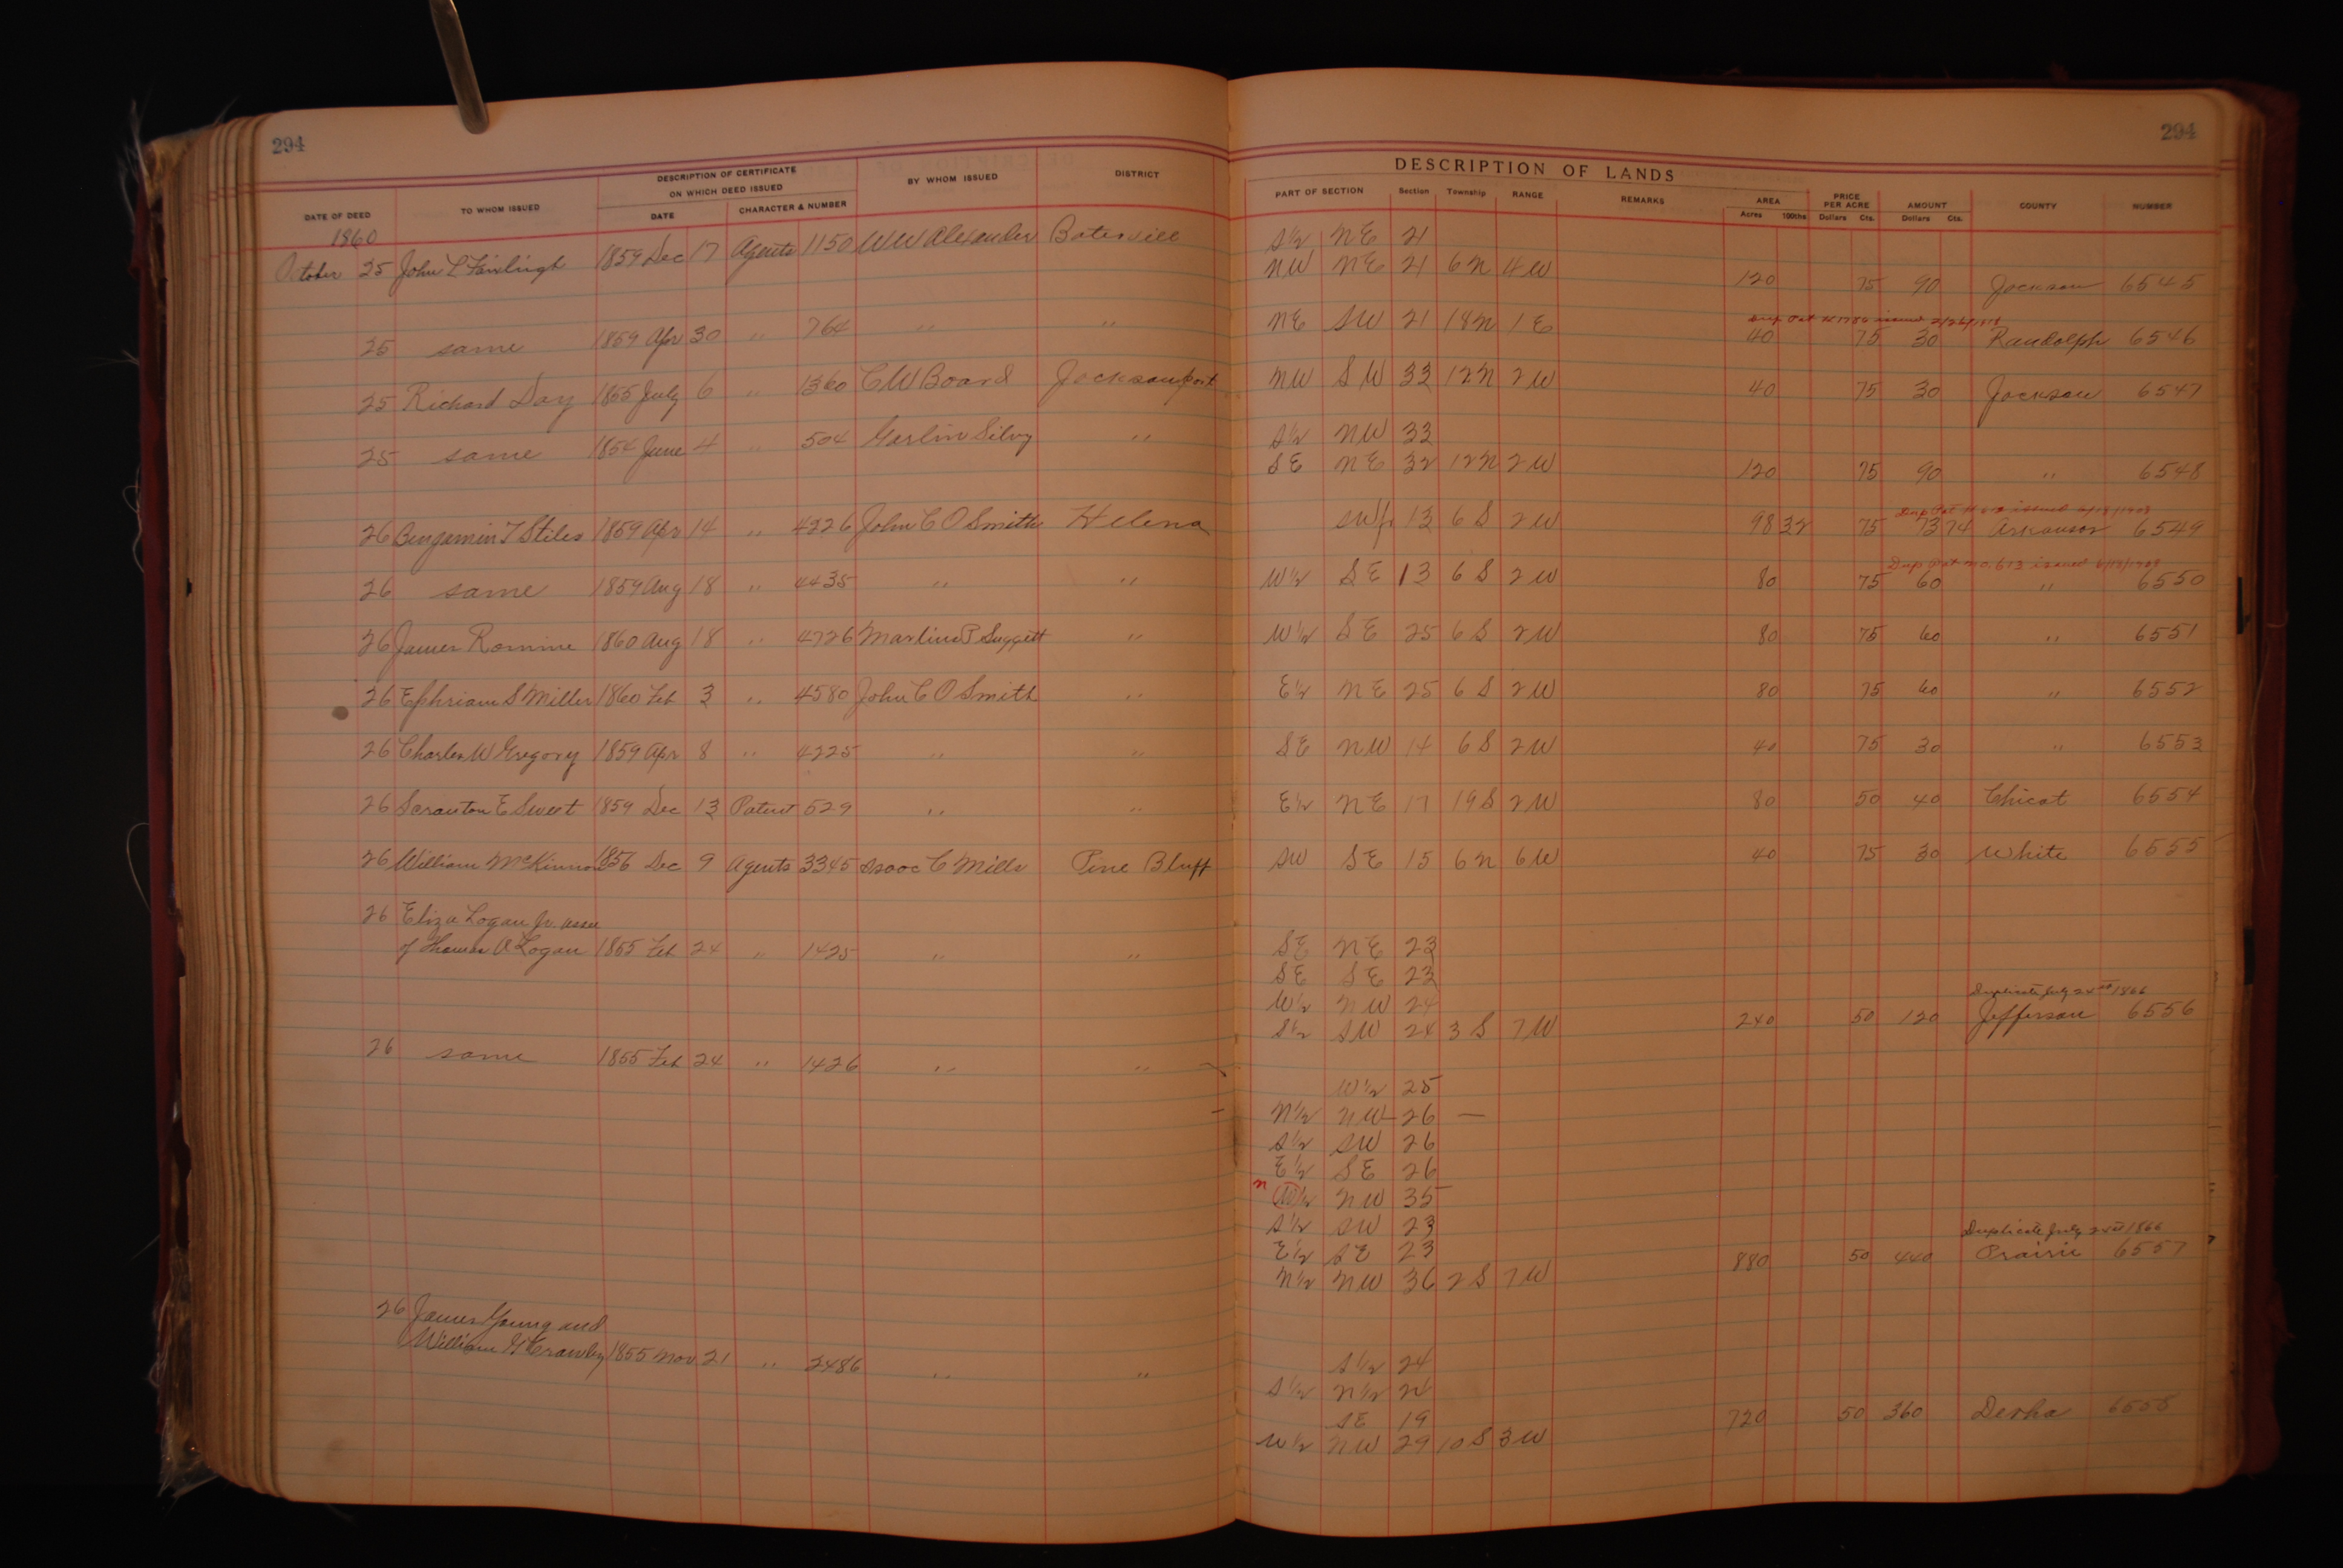 294
294
DESCRIPTION OF LANDS
DATE OF DEED
TO WHOM ISSUED
DESCRIPTION OF CERTIFICATE
ON WHICH DEED ISSUED
DATE
CHARACTER & NUMBER
BY WHOM ISSUED
DISTRICT
PART OF SECTION Section Township RANGE REMARKS
AREA
Acres 100ths
PRICE
PER ACRE
Dollars Cts.
AMOUNT
Dollars Cts.
COUNTY
NUMBER
1860
October 25 John L 1859 Dec 17 Agents 1150 WW Alexander Batesville
S½ NE 21
NW NE 21 6N 4W 120 75 90 Jackson 6545
25 same 1859 Apr 30 " 764 " "
NE SW 21 18N 1E 40 75 30 Randolph 6546
Dup Pat issued
25 Richard Day 1855 July 6 " 1360 C W Board Jacksonport
NW SW 33 12N 2W 40 75 30 Jackson 6547
25 same 1854 June 4 " 504 Garlin Silvy "
S½ NW 33
SE NE 32 12N 2W 120 75 90 " 6548
26 Benjamin T Stiles 1859 Apr 14 " 4226 John C O Smith Helena
Dup Pat issued
SWfr 13 6S 2W 98 32 75 73 74 Arkansas 6549
26 same 1859 Aug 18 " 4435 " "
Dup Pat No. 613 issued
W½ SE 13 6S 2W 80 75 60 " 6550
26 James Romine 1860 Aug 18 " 4726 Marlin P Suggett "
W½ SE 25 6S 2W 80 75 60 " 6551
26 Ephriam S Miller 1860 Feb 3 " 4580 John C O Smith "
E½ NE 25 6S 2W 80 75 60 " 6552
26 Charles W Gregory 1859 Apr 8 " 4225 " "
SE NW 14 6S 2W 40 75 30 " 6553
26 Scranton E Sweet 1859 Dec 13 Patent 529 " "
E½ NE 17 19S 2W 80 50 40 Chicot 6554
26 William McKinnon 1856 Dec 9 Agents 3345 Isaac C Mills Pine Bluff
SW SE 15 6N 6W 40 75 30 White 6555
26 Eliza Logan Jr. assee
of Thomas Logan 1855 Feb 24 " 1425 " "
SE NE 23
SE SE 23
W½ NW 24
Duplicate July 1866
S½ SW 24 3S 7W 240 50 120 Jefferson 6556
26 same 1855 Feb 24 " 1426 " "
W½ 25
N½ NW 26 —
S½ SW 26
E½ SE 26
N W½ NW 35
S½ SW 23
E½ SE 23
Duplicate July 1866
N½ NW 36 2S 7W 880 50 440 Prairie 6557
26 James Young and
William H Crawley 1855 Nov 21 " 2486 " "
S½ 24
S½ N½
SE 19
W½ NW 29 10S 3W 720 50 360 Desha